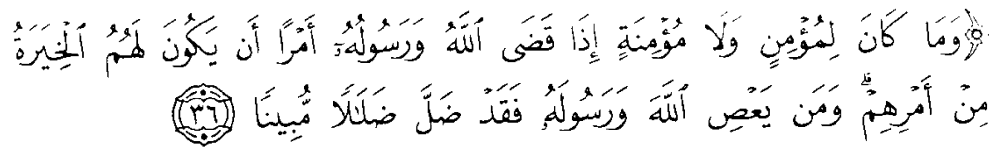 ۞وَمَا كَانَ لِمُؤْمِنٍ وَلَا مُؤْمِنَةٍ إِذَا قَضَى ٱللَّهُ وَرَسُولُهُۥٓ أَمْرًا أَن يَكُونَ لَهُمُ ٱلْخِيَرَةُ
مِنْ أَمْرِهِمْ ۗ وَمَن يَعْصِ ٱللَّهَ وَرَسُولَهُۥ فَقَدْ ضَلَّ ضَلَٰلًا مُّبِينًا ٣٦